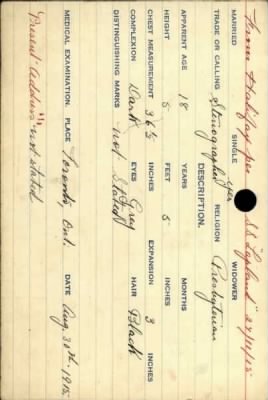 From Halifax per S.S. "Lapland" 27/11/15
MARRIED SINGLE yes WIDOWER
TRADE OR CALLING Stenographer RELIGION Presbyterian
DESCRIPTION.
APPARENT AGE 18 YEARS MONTHS
HEIGHT 5 FEET 5 INCHES
CHEST MEASUREMENT 36½ INCHES EXPANSION 3 INCHES
COMPLEXION Dark EYES Grey HAIR Black
DISTINGUISHING MARKS not stated
MEDICAL EXAMINATION. PLACE Toronto Ont. DATE Aug. 30th 1915.
"Present address" not stated